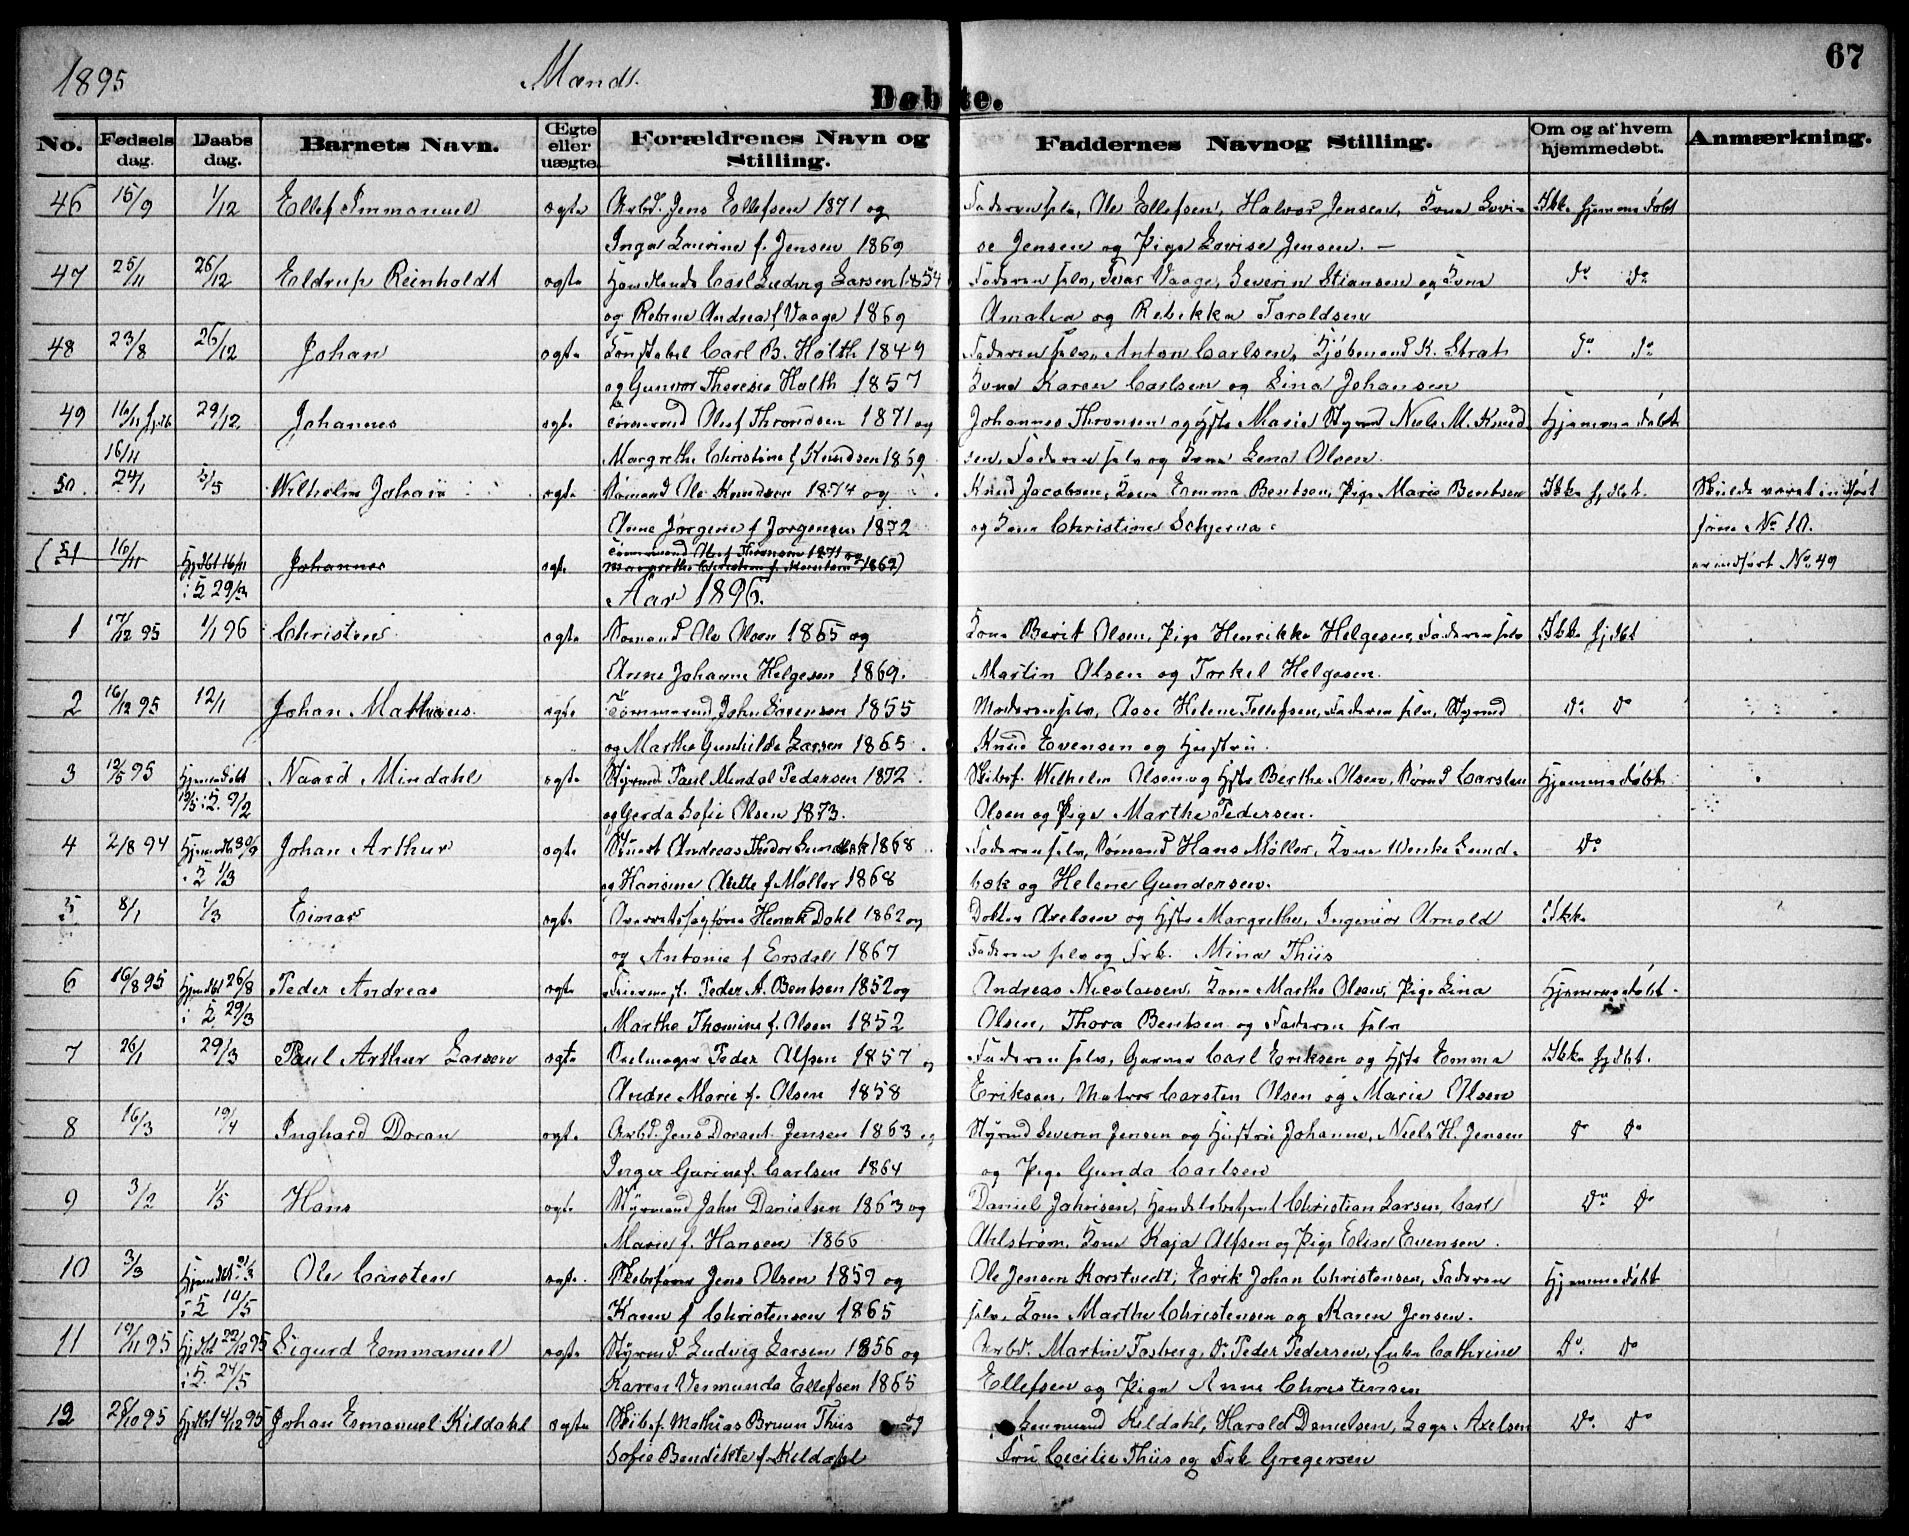 1895 Mænd. 67
Døbte.
No. Fødselsdag. Daabsdag. Barnets Navn. Ægte eller uægte Forældrenes Navn og Stilling. Faddernes Navn og Stilling. Om og af hvem hjemmedøbt. Anmærkning.
46 15/9 1/12 Ellef Immanuel ægte Arbd. Jens Ellefsen 1871 og Faderen selv, Ole Ellefsen, Halvor Jensen, Kone Lovi- Ikke hjemmedøbt
Inga Laurine f. Jensen 1869 se Jensen og Pige Lovise Jensen. –
47 25/11 26/12 Eldrup Reinholdt ægte Handlende Carl Ludvig Larsen 1854 Faderen selv, Ivar Vaage, Severin Stiansen og Kone Do Do
og Rebine Andrea f Vaage 1869 Amalia og Rebekka Taraldsen
48 23/8 26/12 Johan ægte Konstabel Carl B. Holth 1849 Faderen selv, Anton Carlsen, Kjøbmand K. Strat Do Do
og Gunvor Theresia Holth 1857 Kone Karen Carlsen og Lina Johansen
49 16/11 hjdb 29/12 Johannes ægte Tømmermd Oluf Throndsen 1871 og Johannes Thronsen og Hst Marie Styrmd Niels M. Knud- Hjemmedøbt
16/11 Margrethe Christine f Knudsen 1869 sen, Faderen selv og Kone Lena Olsen.
50. 24/1 5/5 Wilhelm Johan ægte Sømand Ole Knudsen 1874 og Knud Jacobsen, Kone Emma Bentsen, Pige Marie Bentsen Ikke hjdbt. Skulde været indført
Anne Jørgine f Jørgensen 1872 og Kone Christine Schjerva. som No 10.
(51 16/11 Hjdbt 16/11 Johannes ægte Tømmermand Oluf Thronsen 1871 og er indført No 49
i K 29/3 Margrethe Christine f. Knudsen 1869)
Aar 1896.
1 17/12 95 1/1 96 Christen ægte Sømand Ole Olsen 1865 og Kone Berit Olsen, Pige Henrikke Helgesen, Faderen selv Ikke hjdbt
Anne Johanne Helgesen 1869. Martin Olsen og Torkel Helgesen.
2 16/12 95 12/1 Johan Mathæus ægte Tømmermd John Sørensen 1855 Moderen selv, Aase Helene Tellefsen, Faderen selv, Styrmd Do Do
og Marthe Gunhilde Larsen 1865. Knud Evensen og Hustru.
3 12/5 95 Hjemmedøbt Naard Mindahl ægte Styrmd Paul Mindal Pedersen 1872 Skibsf. Wilhelm Olsen og Hst Berthe Olsen, Sømd Carsten Hjemmedøbt
19/5 i K. 9/2 og Gerda Sofie Olsen 1873. Olsen og Pige Marthe Pedersen.
4 2/8 94 Hjemdbt 30/9 Johan Arthur ægte Stuert Andreas Thodor Lundbæk 1868 Faderen selv, Sømand Hans Møller, Kone Wenke Lund- Do
i K 1/3 og Hansine Anette f. Møller 1868 bæk og Helene Gundersen.
5 8/1 1/3 Einar ægte Overretssagfører Henrik Dahl 1862 og Doktor Axelsen og Hst Margrethe, Ingeniør Arnold Ikke
og Antonie f Ersdal 1867 Faderen selv og Frk. Mina Thiis
6 16/8 95 Hjemdbt 26/8 Peder Andreas ægte Peder A. Bentsen 1852 og Andreas Nicolaisen, Kone Marthe Olsen, Pige Lina Hjemmedøbt.
i K 29/3 Marthe Thomine f. Olsen 1852 Olsen, Thora Bentsen og Faderen selv
7 26/1 29/3 Paul Arthur Larsen ægte Seelmager Peder Alfsen 1857 og Faderen selv, Garver Carl Eriksen og Hst Emma Ikke hjdbt.
Andre Marie f. Olsen 1858 Eriksen, Matros Carsten Olsen og Marie Olsen
8 16/3 19/4 Inghard Doran ægte Arbd. Jens Dorant Jensen 1863 og Styrmd Severin Jensen og Hustru Johanne, Niels H. Jensen Do Do
Inger Gurine f. Carlsen 1864 og Pige Gunda Carlsen
9 3/2 1/5 Hans ægte Styrmand Jahn Danielsen 1863 og Daniel Jahnsen, Handelsbetjent Christian Larsen, Carl Do Do
Marie f. Hansen 1866 Ahlstrøm, Kone Kaja Alfsen og Pige Elise Evensen.
10 3/3 Hjemdbt 31/3 Ole Carsten ægte Skibsfører Jens Olsen 1859 og Ole Jensen Korstvedt, Erik Johan Christensen, Faderen Hjemmedøbt
i K 10/5 Karen f Christensen 1865 selv, Kone Marthe Christensen og Karen Jensen.
11 19/11 95 Hjdbt 22/12 95 Sigurd Emmanuel ægte Styrmd. Ludvig Larsen 1856 og Arbd. Martin Fosberg, Do Peder Pedersen, Enke Cathrine Do Do
i K. 24/5 Karen Vermunda Ellefsen 1865 Ellefsen og Pige Anne Christensen
12 28/10 95 Hjdbt 4/12 95 Johan Emanuel Kildahl ægte Skibsf. Mathias Bruun Thiis og Gunmund Kildahl, Harald Danielsen, Læge Axelsen Do Do
Sofie Bendikte f. Kildahl Fru Cecilie Thiis og Frk Gregersen